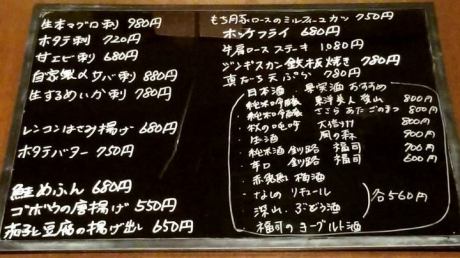 生本マグロ刺 980円
ホタテ刺 720円
甘エビ刺 680円
自家製〆サバ刺 880円
生するめいか刺 780円
レンコンはさみ揚げ 680円
ホタテバター 750円
鮭めふん 680円
ゴボウの唐揚げ 550円
茄子と豆腐の揚げ出し 650円
もち月ぶロースのミルフィーユカツ 750円
ホッケフライ 680円
牛肩ロースステーキ 1,080円
ジンギスカン鉄板焼き 780円
真だち天ぷら 780円
日本酒・果実酒おすすめ
・純米吟醸 東洋美人 800円
・純米吟醸 800円
・秋の 大信州 800円
・生酒 風の森 900円
・純米酒 釧路 福司 700円
・辛口 釧路 福司 600円
・赤鬼 梅酒
・なしのリキュール 各560円
・深山ぶどう酒
・福司のヨーグルト酒